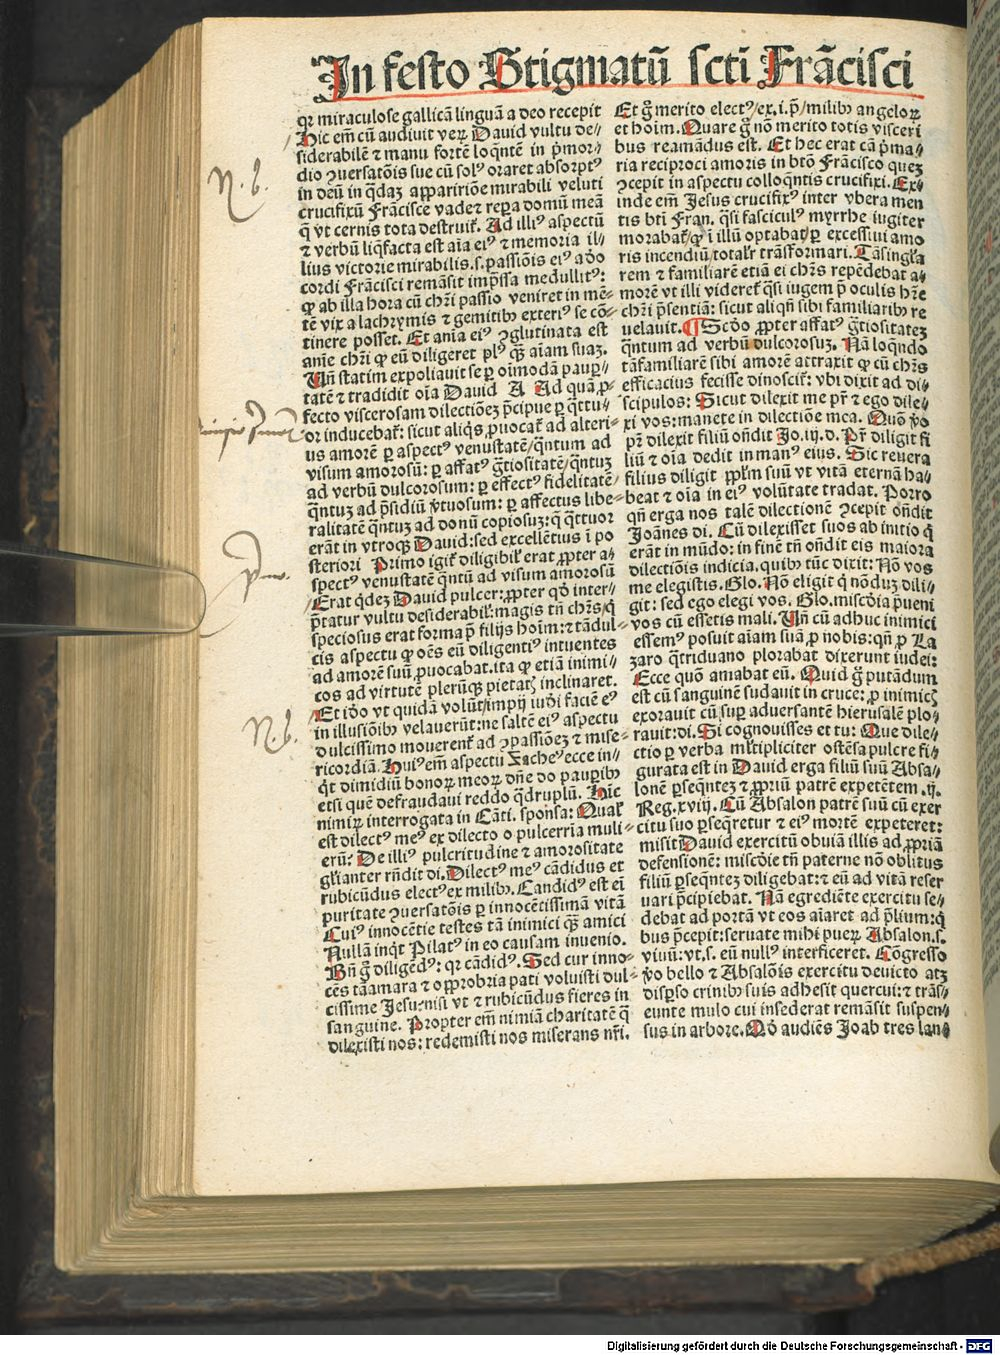 In festo Stigmatū scti Frācisci
qꝛ miraculose gallicā linguā a deo recepit
Hic em̄ cū audiuit veꝝ Dauid vultu de⸗
siderabilē ⁊ manu fortē loq̄ntē in p̄mor⸗
dio ꝯuersatōis sue cū solꝰ oraret absorptꝰ
in deū in q̄daꝫ apparitiōe mirabili veluti
crucifixū Frācisce vade ⁊ repa domū meā
q̄ vt cernis tota destruit̄. Ad illiꝰ aspectū
⁊ verbū liq̄facta est aīa eiꝰ ⁊ memoria il⸗
lius victorie mirabilis.s.passiōis eiꝰ adeo
cordi Frācisci remāsit imp̄ssa medullitꝰ:
ꝙ ab illa hora cū chr̄i passio veniret in mē⸗
tē vix a lachrymis ⁊ gemitibꝰ exteriꝰ se cō⸗
tinere posset. Et anīa eiꝰ ꝯglutinata est
anīe chr̄i ꝙ eū diligeret plꝰ q̄ꝫ aīam suaꝫ.
Vn̄ statim expoliauit se ꝑ oīmodā pauꝑ⸗
tatē ⁊ tradidit oīa Dauid A Ad quā ꝓ⸗
fecto viscerosam dilectiōeꝫ p̄cipue ꝑ q̄ttu⸗
or inducebat̄: sicut aliq̄s ꝓuocat̄ ad alteri⸗
us amorē ꝑ aspectꝰ venustatē/q̄ntum ad
visum amorosū: ꝑ affatꝰ ḡtiositatē/q̄ntuꝫ
ad verbū dulcorosum: ꝑ effectꝰ fidelitatē⸗
q̄ntuꝫ ad p̄sidiū v̓tuosum: ꝑ affectus libe⸗
ralitatē q̄ntuꝫ ad donū copiosuꝫ: q̄ q̄ttuor
erāt in vtroqꝫ Dauid: sed excellētius ī po
steriori Primo igit̄ diligibil̓ erat ꝓpter a⸗
spectꝰ venustatē q̄ntū ad visum amorosū
Erat q̄deꝫ Dauid pulcer: ꝓpter qd̓ inter⸗
p̄tatur vultu desiderabil̓: magis tn̄ chr̄s/q̄
speciosus erat forma p̄ filijs hoīm: ⁊ tādul⸗
cis aspectu ꝙ oēs eū diligentiꝰ intuentes
ad amorē suū ꝓuocabat. ita ꝙ etiā inimi⸗
cos ad virtutē plerūqꝫ pietatꝭ inclinaret.
Et iō vt quidā volūt/impij iudei faciē eꝰ
in illusiōibꝰ velauerūt: ne saltē eiꝰ aspectu
dulcissimo mouerent̄ ad ꝯpassiōeꝫ ⁊ mise⸗
ricordiā. Huiꝰ em̄ aspectu Zacheꝰ ecce in⸗
q̓t dimidiū bonoꝝ meoꝝ dn̄e do pauꝑibꝰ
etsi quē defraudaui reddo q̄druplū. Hic
nimiꝝ interrogata in Cāti. sponsa: Qual̓
est dilectꝰ meꝰ ex dilecto o pulcerrīa muli⸗
erū? De illiꝰ pulcritudine ⁊ amorositate
gl̓ianter rn̄dit di. Dilectꝰ meꝰ cādidus et
rubicūdus electꝰ ex milibꝰ. Candidꝰ est eī
puritate ꝯuersatōis ꝑ innocētissimā vitā
Cuiꝰ innocētie testes tā inimici q̄ꝫ amici
Nullā inq̓t Pilatꝰ in eo causam inuenio.
Bn̄ ḡ diligēdꝰ: qꝛ cādidꝰ. Sed cur inno⸗
cēs tā amara ⁊ opprobria pati voluisti dul⸗
cissime Jesu: nisi vt ⁊ rubicūdus fieres in
sanguine. Propter em̄ nimiā charitatē q̄
dilexisti nos: redemisti nos miserans nr̄i.
Et ḡ merito electꝰ/ex.i.p̄/milibꝰ angeloꝝ
et hoīm. Quare ḡ nō merito totis visceri
bus reamādus est. Et hec erat cā p̄ma⸗
ria reciproci amoris in btō Frācisco queꝫ
ꝯcepit in aspectu colloq̄ntis crucifixi. Ex⸗
inde em̄ Jesus crucifixꝰ inter vbera men
tis bti Fran. q̄si fasciculꝰ myrrhe iugiter
morabat̄/q̄ ī illū optabat/ꝑ excessiui amo
ris incendiū/totalr̄ trāsformari. Tā singl̓a
rem ⁊ familiarē etiā ei chr̄s repēdebat a⸗
morē vt illi videret̄ q̄si iugem p̄ oculis hr̄e
chr̄i p̄sentiā: sicut aliq̄n sibi familiaribꝰ re
uelauit. ¶ Scd̓o ꝓpter affatꝰ ḡtiositateꝫ
q̄ntum ad verbū dulcorosuꝫ. Nā loq̄ndo
tā familiarē sibi amorē attraxit ꝙ cū chr̄s
efficacius fecisse dinoscit̄: vbi dixit ad di⸗
scipulos: Sicut dilexit me pr̄ ⁊ ego dile⸗
xi vos: manete in dilectiōe mea. Quō v̓o
pr̄ dilexit filiū on̄dit Jo.iij.d. Pr̄ diligit fi
liū ⁊ oīa dedit in manꝰ eius. Sic reuera
filius diligit ppl̓m suū vt vitā eternā ha⸗
beat ⁊ oīa in eiꝰ volūtate tradat. Porro
qn̄ erga nos talē dilectionē ꝯcepit on̄dit
Joānes di. Cū dilexisset suos ab initio q̄
erāt in mūdo: in finē tn̄ on̄dit eis maiora
dilectiōis indicia. quibꝰ tūc dixit: Nō vos
me elegistis. Glo. Nō eligit q̄ nōduꝫ dili⸗
git: sed ego elegi vos. Glo. mīscd̓ia p̄ueni
vos cū essetis mali. Vn̄ cū adhuc inimici
essemꝰ posuit aīam suā ꝓ nobis: qn̄ ꝓ La
zaro q̄triduano plorabat dixerunt iudei:
Ecce quō amabat eū. Quid ḡ putādum
est cū sanguinē sudauit in cruce: ꝓ inimicꝭ
exorauit cū suꝑ aduersantē hierusalē plo⸗
rauit: di. Si cognouisses et tu: Que dile⸗
ctio ꝑ verba ml̓tipliciter ostēsa pulcre fi⸗
gurata est in Dauid erga filiū suū Absa⸗
lonē ꝑseq̄ntez ⁊ ꝓpriū patrē expetētem .ij.
Reg.xviij. Cū Absalon patrē suū cū exer
citu suo ꝑseq̄retur ⁊ eiꝰ mortē expeteret:
misit Dauid exercitū obuiā illis ad ꝓpriā
defensionē: mīscd̓ie tn̄ paterne nō oblitus
filiū ꝑseq̄nteꝫ diligebat: ⁊ eū ad vitā reser
uari p̄cipiebat. Nā egrediēte exercitu se⸗
debat ad portā vt eos aīaret ad p̄lium: q̄
bus p̄cepit: seruate mihi pueꝝ Absalon.s.
viuū: vt.s. eū nullꝰ interficeret. Cōgresso
v̓o bello ⁊ Absalōis exercitu deuicto atqꝫ
disꝑso crinibꝰ suis adhesit quercui: ⁊ trās⸗
eunte mulo cui insederat remāsit suspen⸗
sus in arbore. Qd̓ audiēs Joab tres lan⸗
N. b.
N. b.
Digitalisierung gefördert durch die Deutsche Forschungsgemeinschaft - DFG